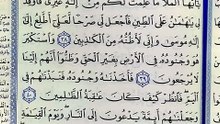 يَٰٓأَيُّهَا ٱلْمَلَأُ مَا عَلِمْتُ لَكُم مِّنْ إِلَٰهٍ غَيْرِى فَأَوْقِدْ
لِى يَٰهَٰمَٰنُ عَلَى ٱلطِّينِ فَٱجْعَل لِّى صَرْحًا لَّعَلِّىٓ أَطَّلِعُ إِلَىٰٓ
إِلَٰهِ مُوسَىٰ وَإِنِّى لَأَظُنُّهُۥ مِنَ ٱلْكَٰذِبِينَ ٣٨ وَٱسْتَكْبَرَ
هُوَ وَجُنُودُهُۥ فِى ٱلْأَرْضِ بِغَيْرِ ٱلْحَقِّ وَظَنُّوٓا۟ أَنَّهُمْ إِلَيْنَا
لَا يُرْجَعُونَ ٣٩ فَأَخَذْنَٰهُ وَجُنُودَهُۥ فَنَبَذْنَٰهُمْ فِى
ٱلْيَمِّ فَٱنظُرْ كَيْفَ كَانَ عَٰقِبَةُ ٱلظَّٰلِمِينَ ٤٠
وَجَعَلْنَٰهُمْ أَئِمَّةً يَدْعُونَ إِلَى ٱلنَّارِ وَيَوْمَ ٱلْقِيَٰمَةِ